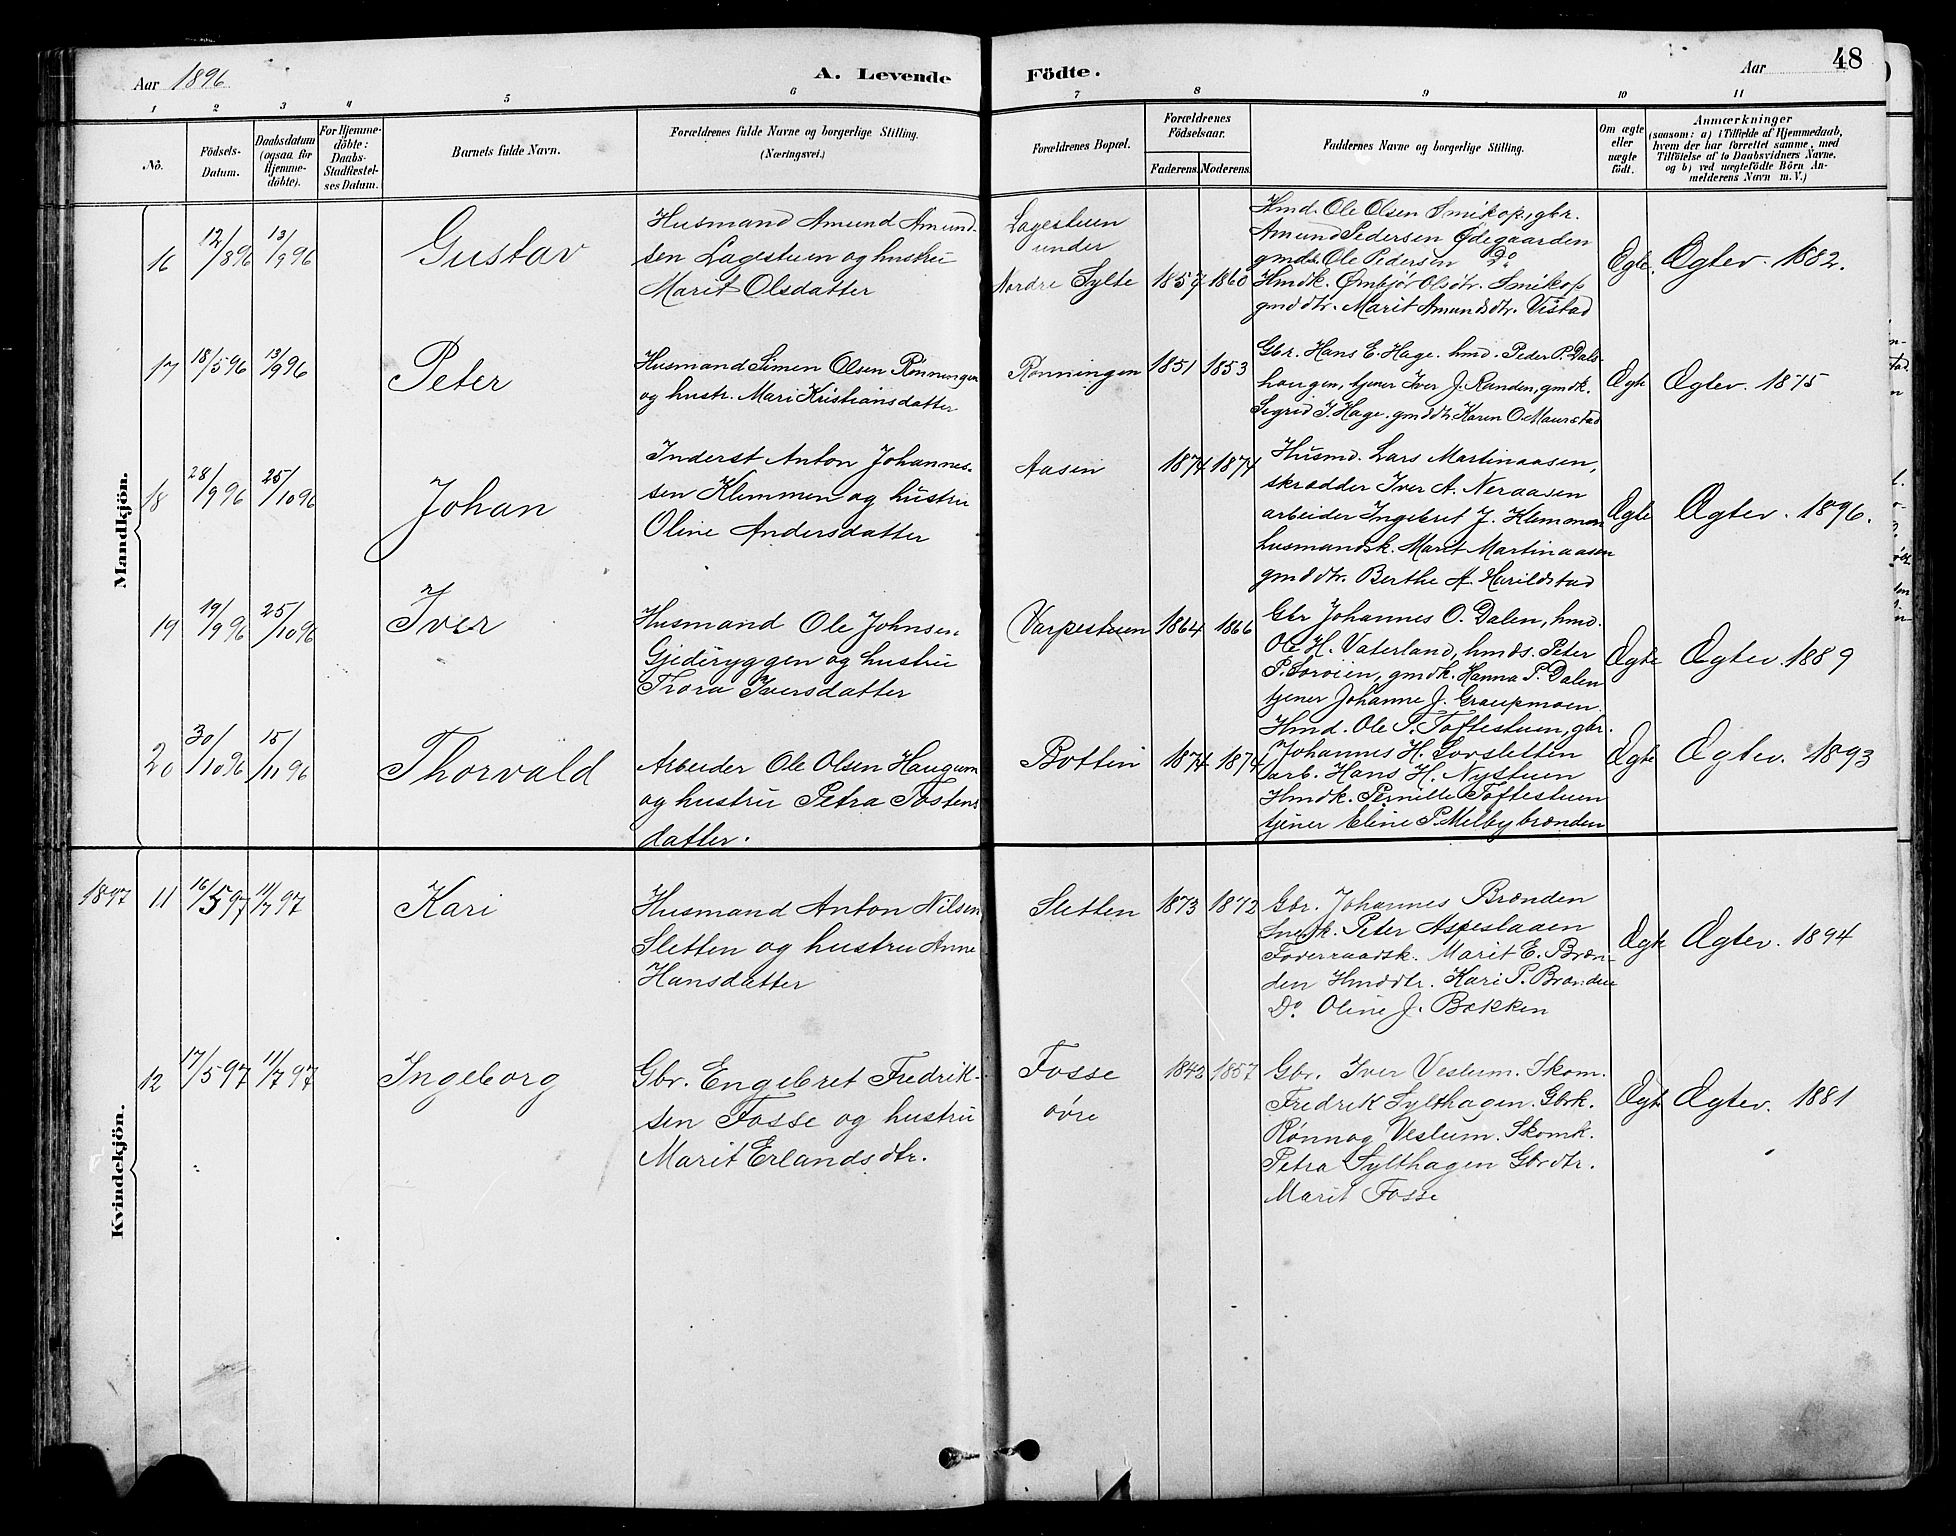 Aar 1896
A. Levende Födte.
Aar
48
1 2 3 4 5 6 7 8 9 10 11
No.
Födsels-Datum.
Daabsdatum (ogsaa for Hjemme-döbte).
For Hjemme-döbte: Daabs-Stadfæstel-ses Datum.
Barnets fulde Navn.
Forældrenes fulde Navne og borgerlige Stilling. (Næringsvei.)
Forældrenes Bopæl.
Forældrenes Födselsaar.
Faderens. Moderens.
Faddernes Navne og borgerlige Stilling.
Om ægte eller uægte födt.
Anmærkninger
(saasom: a) i Tilfælde af Hjemmedaab,
hvem der har forrettet samme, med
Tilföielse af to Daabsvidners Navne,
og b) ved uægtefödte Börn An-
melderens Navn m. V.)
Mandkjön.
16 12/8 96 13/9 96
Gustav
Husmand Amund Amund-
sen Lagestuen og hustru
Marit Olsdatter
Lagestuen
under
Nordre Sylte
1857 1860
Hmd. Ole Olsen Smikop, gbr.
Amund Pedersen Ødegaarden
gmds. Ole Pedersen Do
Hmdk. Ømbjør Olsdtr. Smikop
gmddtr. Marit Amundsdtr. Vistad
Ægte.
Ægtev. 1882.
17 18/5 96 13/9 96
Peter
Husmand Simen Olsen Rønningen
og hustr. Mari Kristiansdatter
Rønningen
1851 1853
Gbr. Hans E. Hage. hmd. Peder P. Dals-
haugen, tjener Iver J. Randen, gmdk.
Sigrid J. Hage. gmddtr Karen O. Maurstad
Ægte
Ægtev. 1875
18 28/9 96 25/10 96
Johan
Inderst Anton Johannes-
sen Klemmen og hustru
Oline Andersdatter
Aasen
1874 1874
Husmd. Lars Martinaasen,
skrædder Iver A. Neraasen
arbeider Ingebret J. Klemmen
husmandsk. Marit Martinaasen
gmddtr. Berthe A. Harildstad
Ægte
Ægtev. 1896.
19 19/9 96 25/10 96
Iver
Husmand Ole Johnsen
Gjederyggen og hustru
Thora Iversdatter
Varpestuen
1864 1866
Gbr Johannes O. Dalen, hmd.
Ole H. Vaterland, hmds. Peter
P. Sorøien, gmdk. Hanna P. Dalen
tjener Johanne J. Graupmoen.
Ægte
Ægtev. 1889
20 30/10 96 15/11 96
Thorvald
Arbeider Ole Olsen Haugum
og hustru Petra Tostens
datter.
Botten
1874 1874
Hmd. Ole P. Toftestuen, gbr.
Johannes H. Sorsletten
arb. Hans H. Nystuen
Hmdk. Pernille Toftestuen
tjener Eline P. Melbybrænden
Ægte
Ægtev. 1893
Kvindekjön.
1897 11 16/5 97 11/7 97
Kari
Husmand Anton Nilsen
Sletten og hustru Anne
Hansdatter
Sletten
1873 1872
Gbr. Johannes Brænden
Snedk. Peter Aspeslaaen
Føderraadsk. Marit E. Bræn-
den Hmddtr. Kari P. Brænden
Do Oline J. Bakken
Ægte
Ægtev. 1894
12 17/5 97 11/7 97
Ingeborg
Gbr. Engebret Fredrik-
sen Fosse og hustru
Marit Erlandsdtr.
Fosse
øvre
1843 1857
Gbr. Iver Veslum. Skom.
Fredrik Sylthagen. Gbrk.
Rønnog Veslum. Skomk.
Petra Sylthagen Gbrdtr.
Marit Fosse
Ægte
Ægtev. 1881